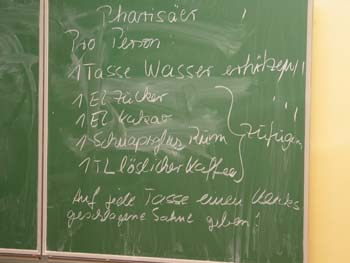 Pharisäer
Pro Person
1 Tasse Wasser erhitzen!
1 EL Zucker
1 EL Kakao
1 Schnapsglas Rum
zufügen
1 TL löslicher Kaffee
Auf jede Tasse einen Klecks
geschlagene Sahne geben!